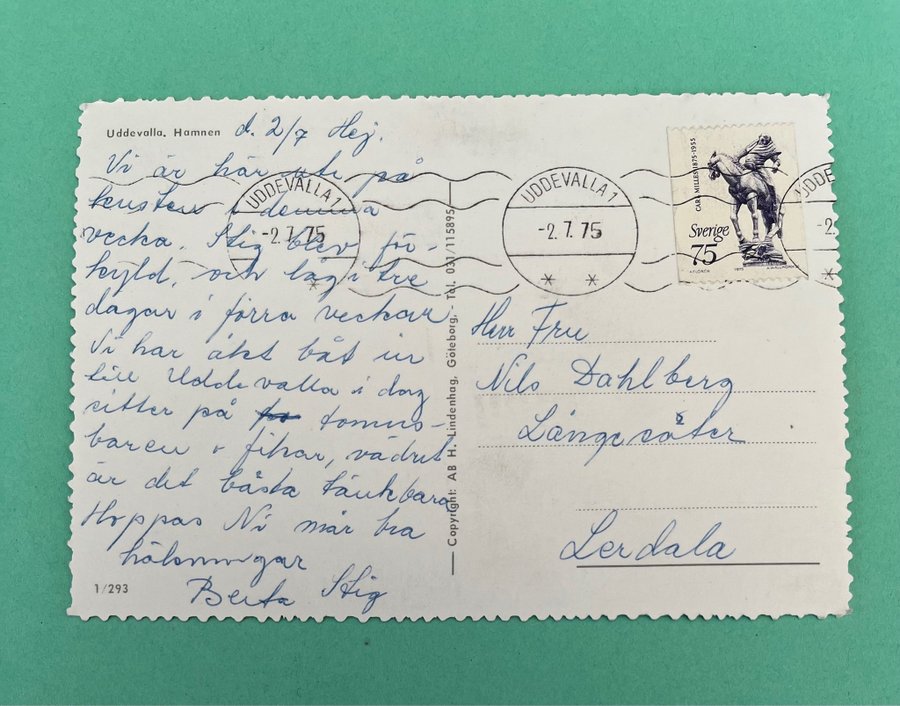 Uddevalla. Hamnen
d. 2/7 Hej.
Vi är här ute på
kusten i denna
vecka. Stig blev för-
kyld, och låg i tre
dagar i förra veckan
Vi har åkt båt in
till Uddevalla i dag
sitter på
baren o fikar, vädret
är det bästa tänkbara
Hoppas Ni mår bra
hälsningar
Berta Stig
1/293
Copyright: AB H. Lindenhag, Göteborg. - Tel. 031/115895
UDDEVALLA 1
-2. 7. 75
UDDEVALLA 1
-2. 7. 75
UDDE
-2.
CARL MILLES 1875-1955
Sverige
75
Herr Fru
Nils Dahlberg
Långesäter
Lerdala